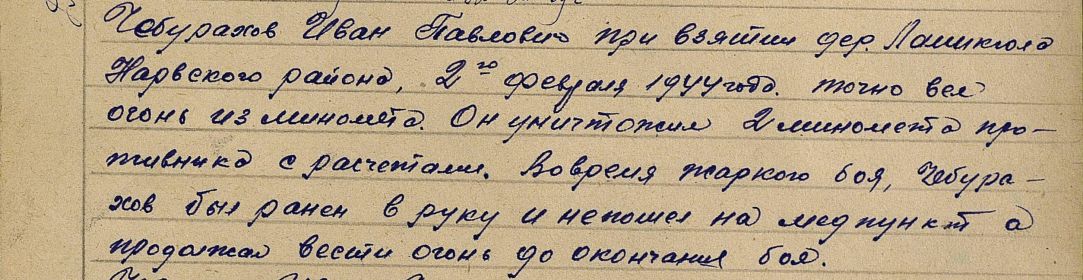 Чебурахов Иван Павлович при взятии дер. Лашкюла
Нарвского района, 2го февраля 1944 года. точно вел
огонь из миномета. Он уничтожил 2 миномета про-
тивника с расчетами. Вовремя жаркого боя, Чебура-
хов был ранен в руку и непошел на медпункт а
продолжал вести огонь до окончания боя.